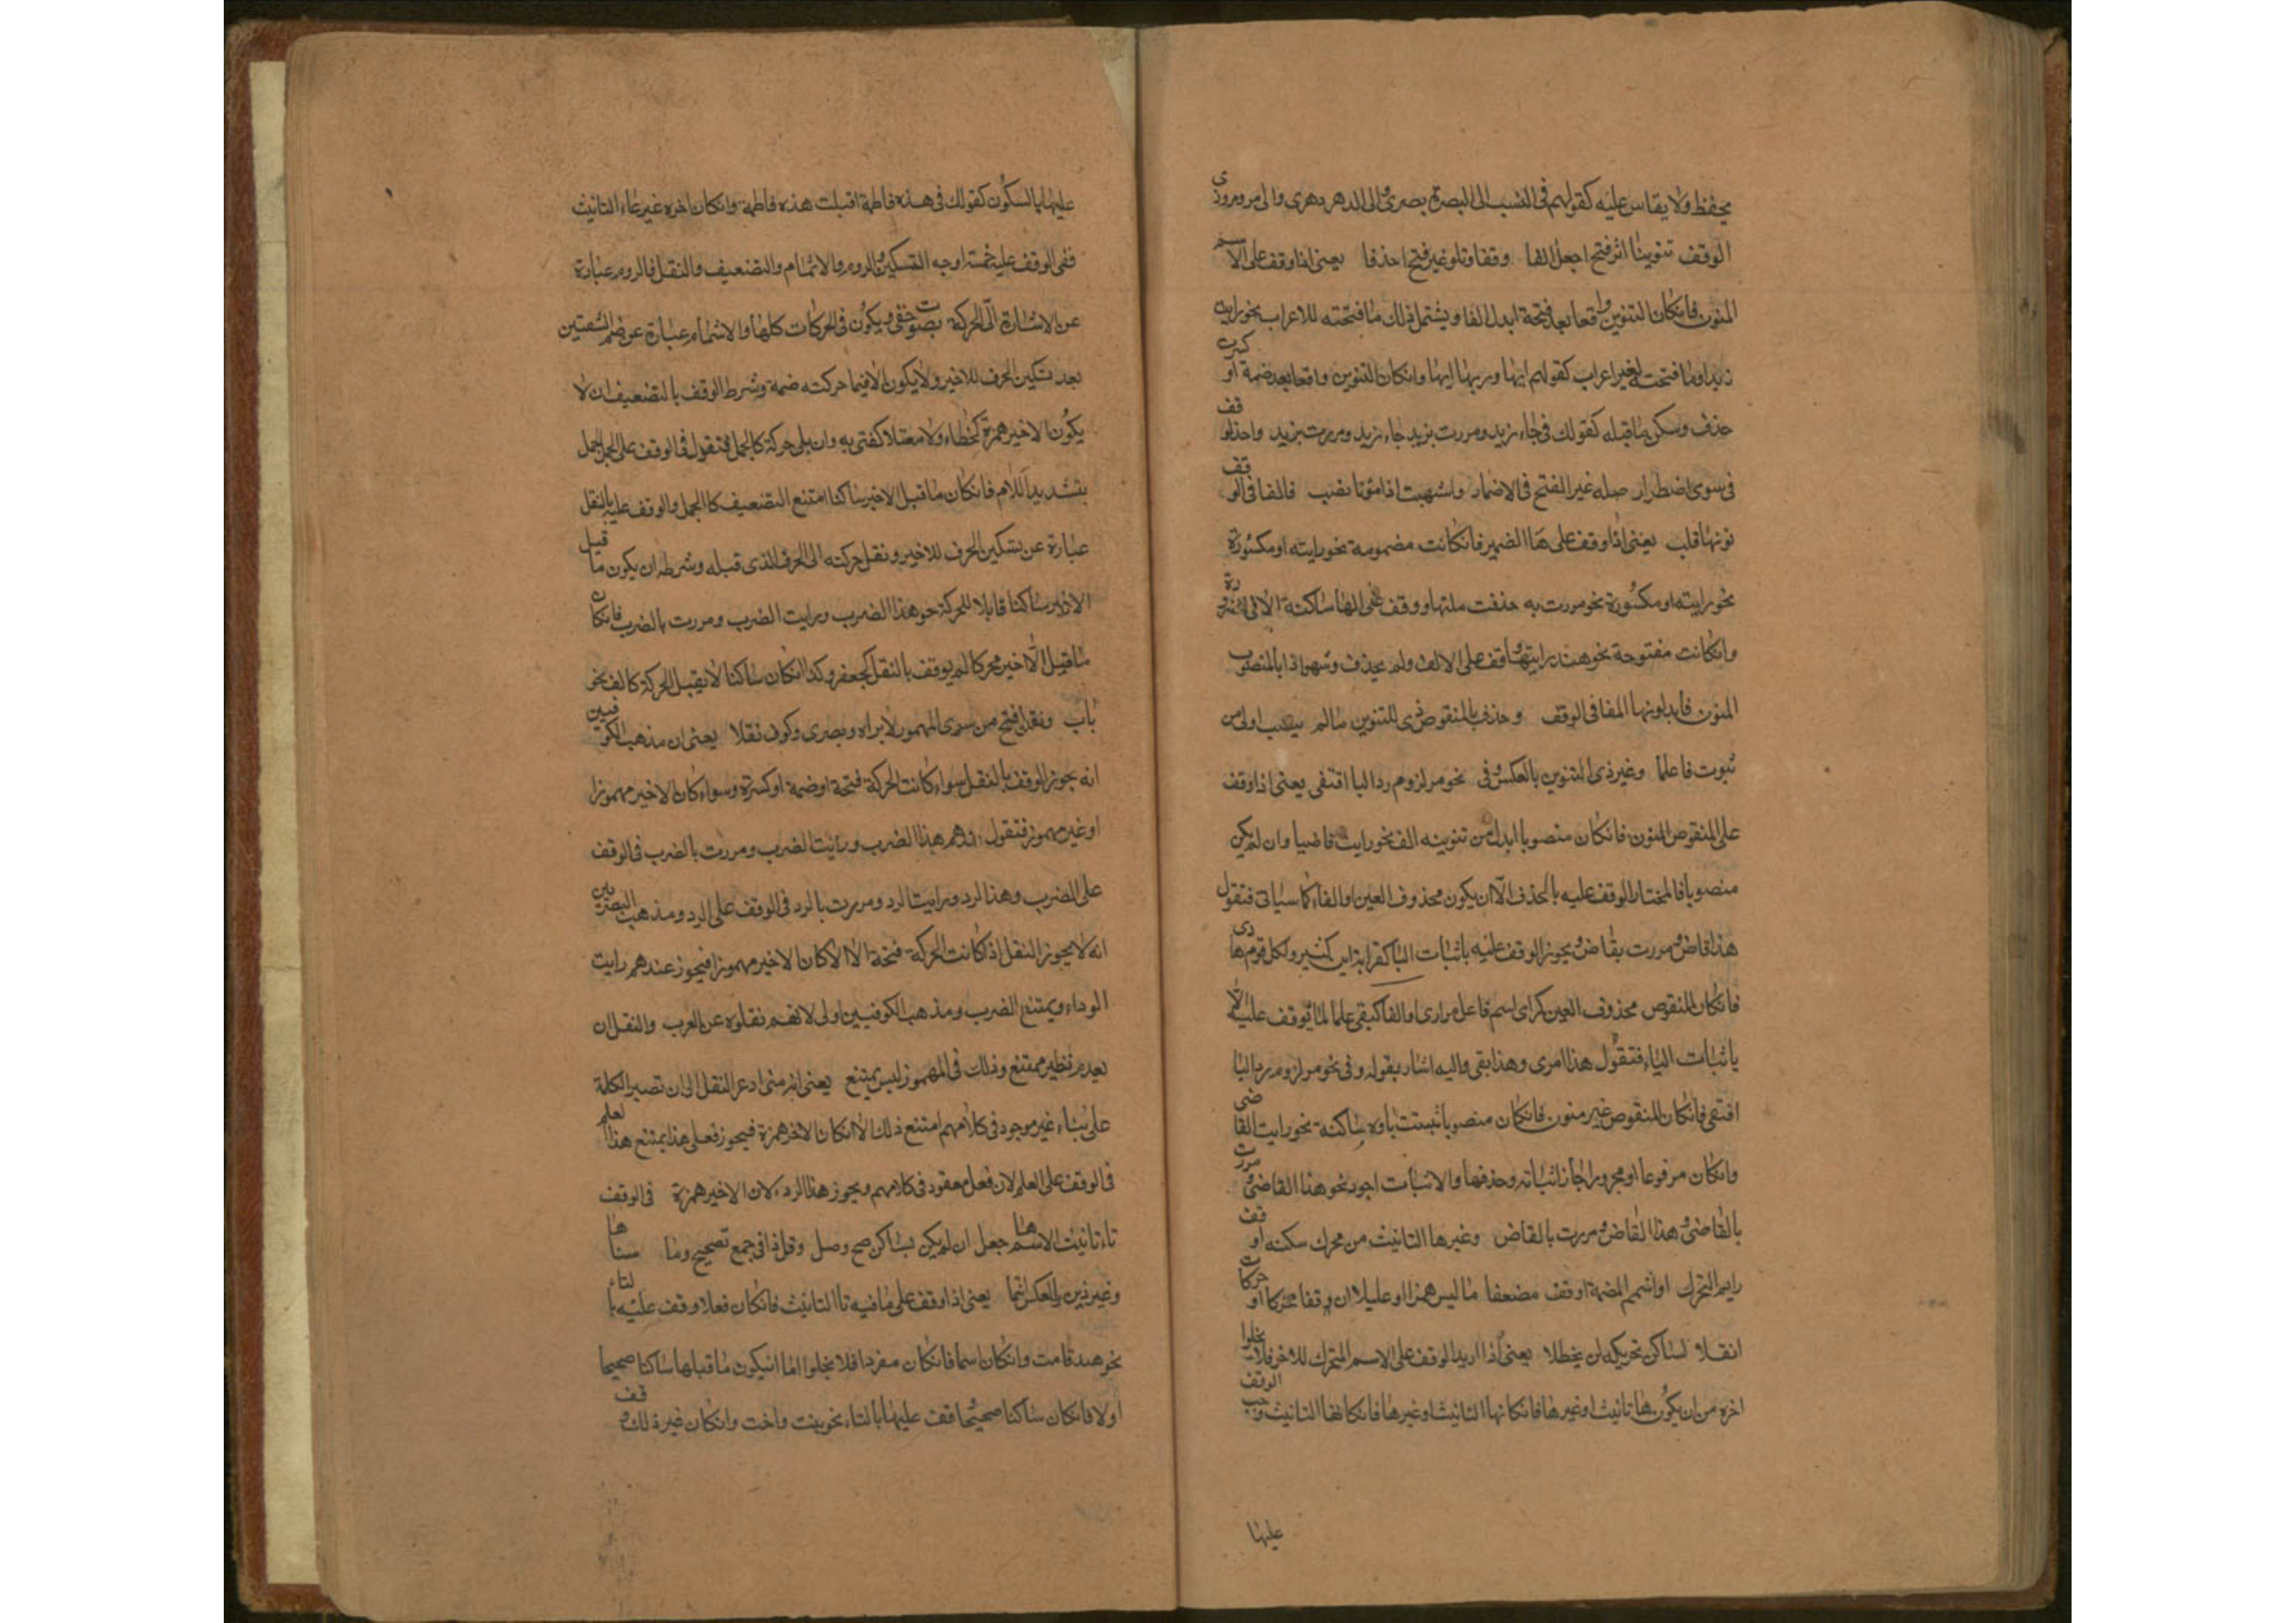 يحفظ ولا يقاس عليه كقولهم فى النسب الى البصرة بصرى والى الدهر دهرى والى مرو مروزى
الوقف تنوينا اثر فتح اجعل الفا وقفا وتلو غير فتح احذفا يعنى اذا وقف على الاسم
المنون فانكان التنوين واقعا بعد فتحة ابدل الفا ويشتمل ذلك ما فتحته للاعراب نحو رايت
زيدا وما فتحته لغير اعراب كقولهم ايها وويها ايها وانكان التنوين واقعا بعد ضمة او كسرة
حذف وسكن ما قبله كقولك فى جاء زيد ومررت بزيد جاء زيد ومررت بزيد واحذف لوقف
فى سوى اضطرار صلة غير الفتح فى الاضمار واشبهت اذا منونا نصب فالفا فى الوقف
نونها قلب يعنى اذا وقف على هاء الضمير فانكانت مضمومة نحو رايته او مكسورة
نحو رايته او مكسورة نحو مررت به حذفت صلتها ووقف على الها ساكنة الا فى الضرورة
وانكانت مفتوحة نحو هند رايتها وقف على الالف ولم يحذف وشبهوا اذا بالمنصوب
المنون فابدلوا نونها الفا فى الوقف وحذف يا المنقوص ذى التنوين ما لم ينصب اولى من
ثبوت فاعلما وغير ذى التنوين بالعكس وفى نحو مر لزوم رد اليا اقتفى يعنى اذا وقف
على المنقوص المنون فانكان منصوبا ابدل من تنوينه الف نحو رايت قاضيا وان لم يكن
منصوبا فالمختار الوقف عليه بالحذف الا ان يكون محذوف العين او الفاء كما سياتى فتقول
هذا قاض ومررت بقاض ويجوز الوقف عليه باثبات اليا كقراءة ابن كثير ولكل قوم هادى
فانكان المنقوص محذوف العين كراى اسم فاعل من ارى او الفا كيفى علما لم يوقف عليه الا
باثبات الياء فتقول هذا مرى وهذا يفى واليه اشار بقوله وفى نحو مر لزوم رد اليا
اقتفى فانكان المنقوص غير منون فانكان منصوبا ثبتت ياوه ساكنة نحو رايت القاضى
وانكان مرفوعا او مجرورا جاز اثباته وحذفها والاثبات اجود نحو هذا القاضى ومررت
بالقاضى وهذا القاض ومررت بالقاض وغير ها التانيث من محرك سكنه او قف
رايم التحرك او اشمم الضمة او قف مضعفا ما ليس همزا او عليلا ان قفا محركا وحركات
انقلا لساكن تحريكه لن يحظلا يعنى اذا اريد الوقف على الاسم المتحرك للاخر فلا يخلوا
اخره من ان يكون ها تانيث او غيرها فانكانها التانيث او غيرها فانكانها التانيث وجب الوقف
عليها
عليها بالسكون كقولك فى هذه فاطمة اقبلت هذه فاطمة وانكان اخره غير هاء التانيث
ففى الوقف عليه خمسة اوجه التسكين والروم والاشمام والتضعيف والنقل فالروم عبارة
عن الاشارة الى الحركة بصوت خفى ويكون فى الحركات كلها والاشمام عبارة عن ضم الشفتين
بعد تسكين الحرف للاخير ولا يكون الا فيما حركته ضمة وشرط الوقف بالتضعيف ان لا
يكون الاخير همزة كخطاء ولا معتلا كفتى به وان يلى حركة كالجمل فتقول فى الوقف على الجمل الجمل
بتشديد اللام فانكان ما قبل الاخير ساكنا امتنع التضعيف كالجمل والوقف عليه بالنقل
عبارة عن تسكين الحرف للاخير ونقل حركته الى الحرف الذى قبله وشرطه ان يكون ما قبل
الاخير ساكنا قابلا للحركة نحو هذا الضرب ورايت الضرب ومررت بالضرب فانكان
ما قبل الاخير محركا لم يوقف بالنقل كجعفر وكذا انكان ساكنا لا يقبل الحركة كالف نحو
باب ونقل فتح من سوى المهموز لا يراه بصرى وكوف نقلا يعنى ان مذهب الكوفيين
انه يجوز الوقف بالنقل سواء كانت الحركة فتحة او ضمة او كسرة وسواء كان الاخير مهموزا
او غير مهموز فتقول عندهم هذا الضرب ورايت الضرب ومررت بالضرب فى الوقف
على الضرب وهذا الرد ورايت الرد ومررت بالرد فى الوقف على الرد ومذهب البصريين
انه لا يجوز النقل اذا كانت الحركة فتحة الا اذا كان الاخير مهموزا فيجوز عندهم رايت
الوداء ويمتنع الضرب ومذهب الكوفيين اولى لانهم نقلوه عن العرب والنقل ان
يعدم نظير ممتنع وذلك فى المهموز ليس يمتنع يعنى انه متى ادى النقل الى ان تصير الكلمة
على بناء غير موجود فى كلامهم امتنع ذلك الا انكان الاخر همزة فيجوز فعلى هذا يمتنع هذا العلم
فى الوقف على العلم لان فعل مفقود فى كلامهم ويجوز هذا الرد لان الاخير همزة فى الوقف
تاء تانيث الاسم ها جعل ان لم يكن بساكن صح وصل وقل ذا فى جمع تصحيح وما ضاها
وغير ذين بالعكس انتما يعنى اذا وقف على ما فيه تا التانيث فانكان فعلا وقف عليه بالتاء
نحو هند قامت وانكان اسما فانكان مفردا فلا يخلوا اما انيكون ما قبلها ساكنا صحيحا
اولا فانكان ساكنا صحيحا وقف عليها بالتاء نحو بنت واخت وانكان غير ذلك وقف